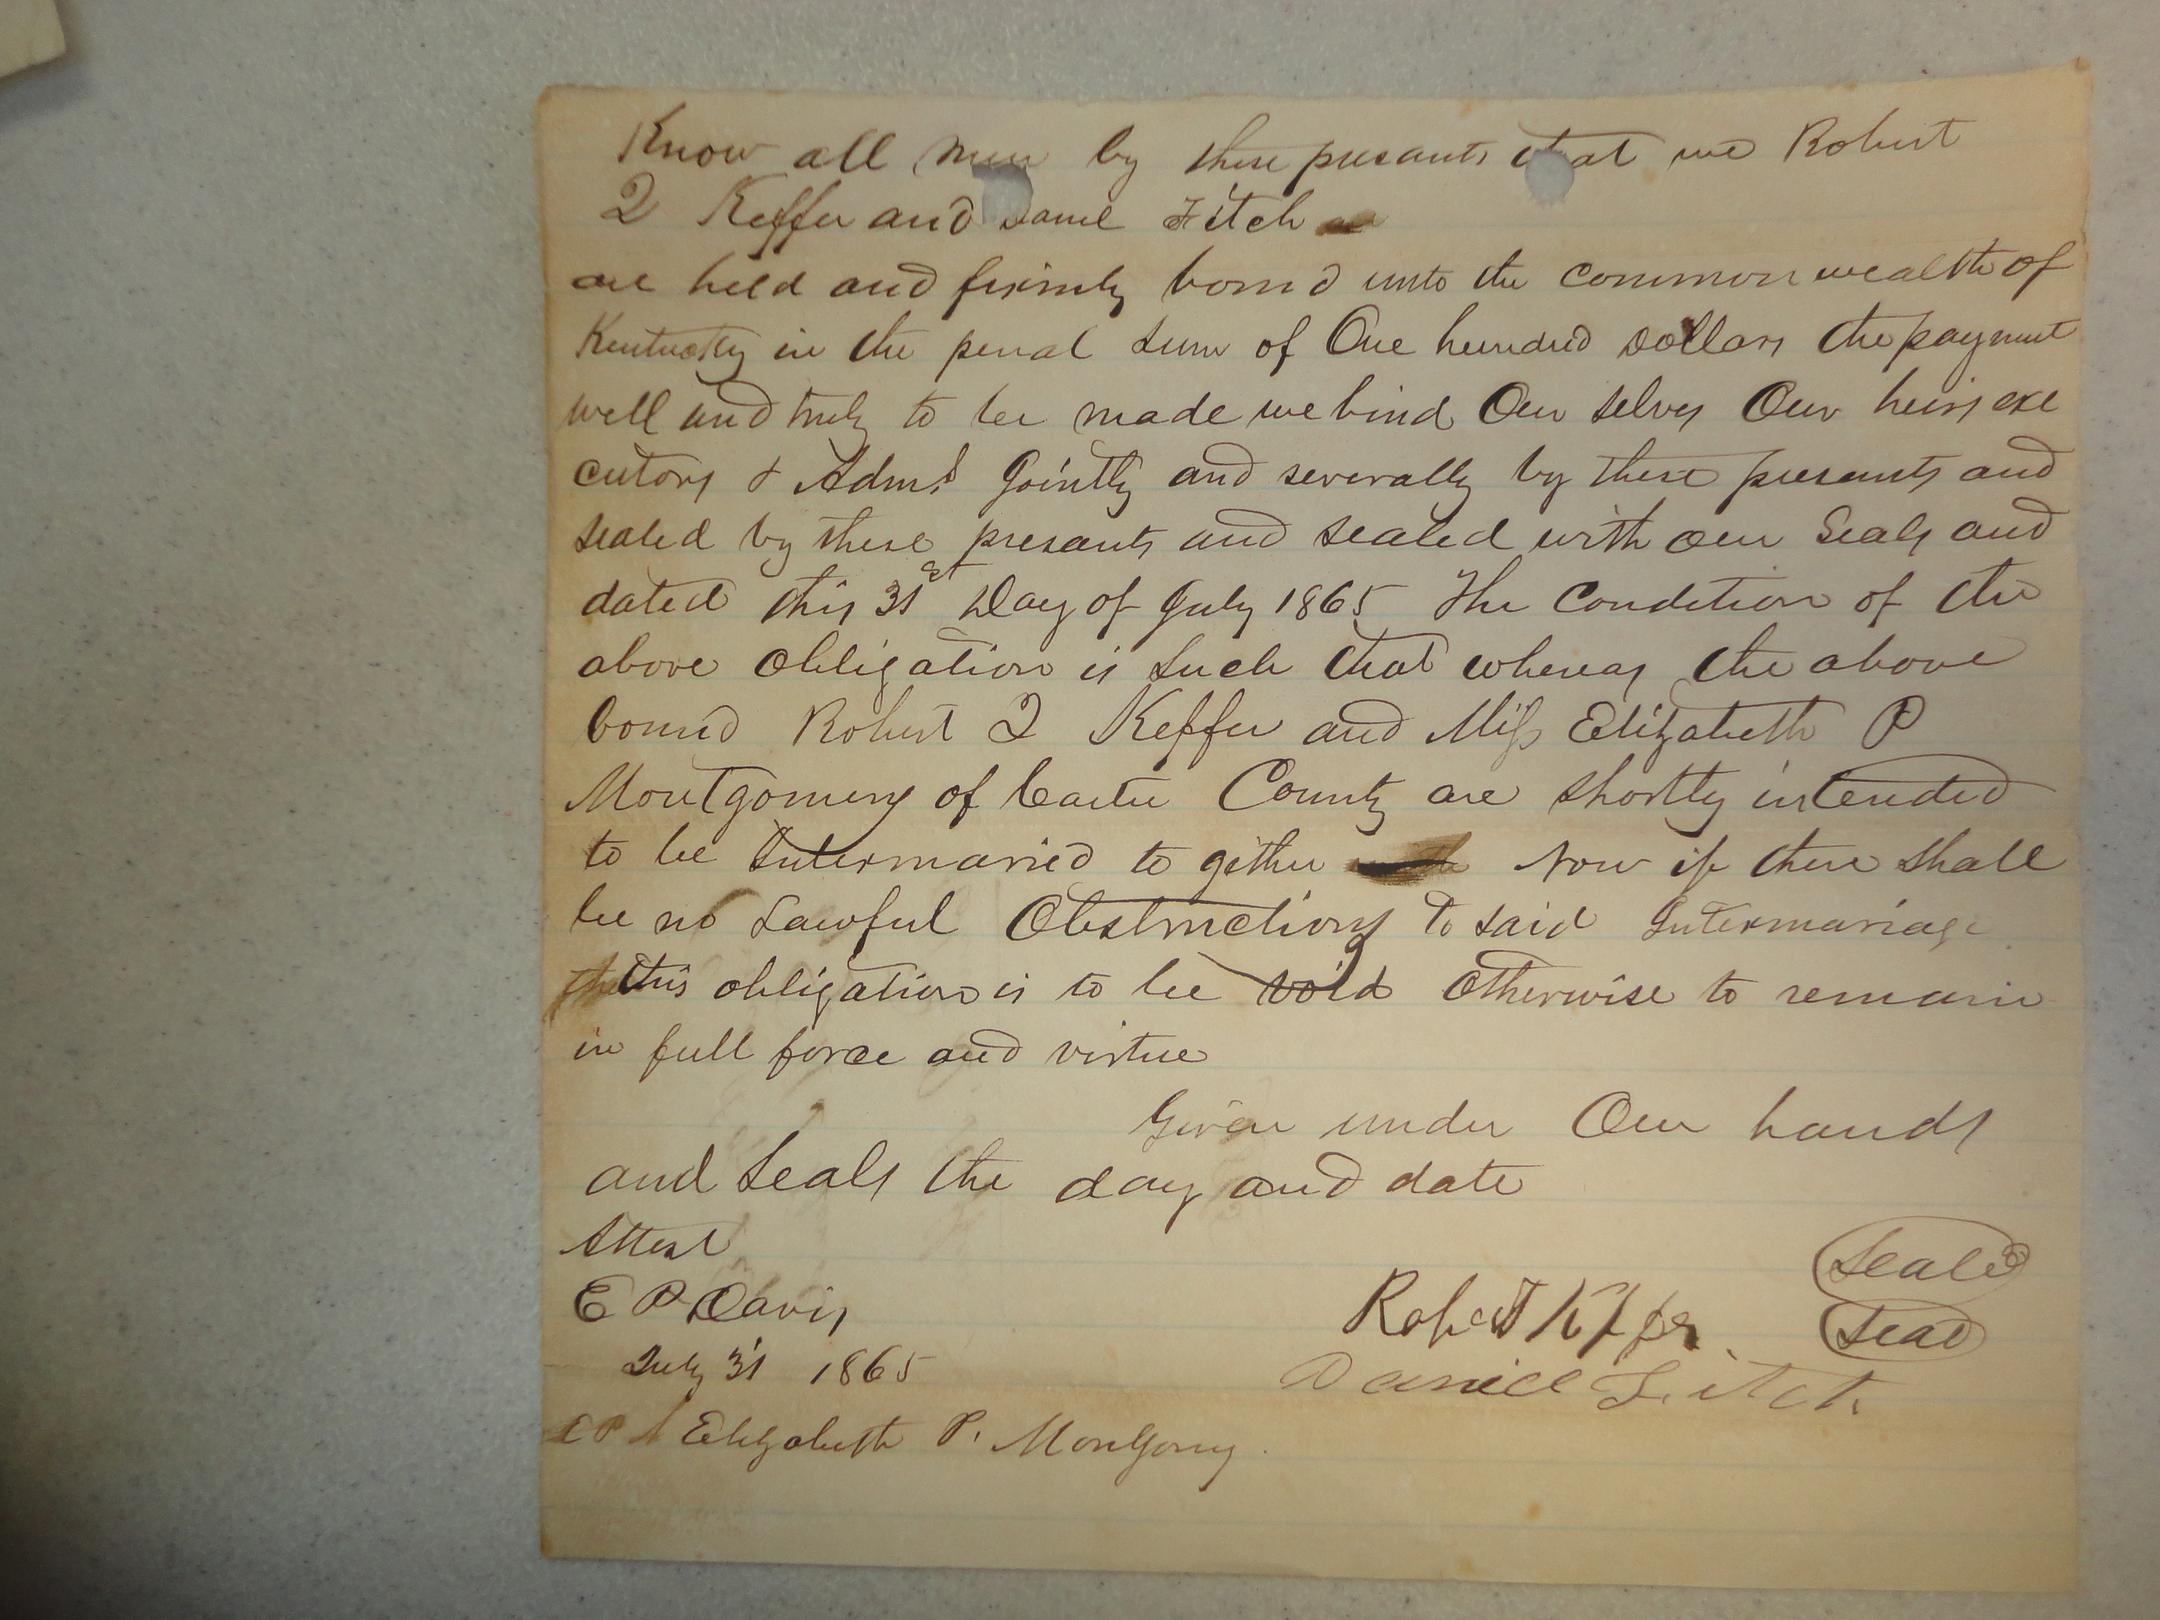 Know all men by these presants that we Robert
Q Keffer and Daniel Fitch
are held and firimly bound unto the commonwealth of
Kentucky in the penal sum of One hundred Dollars the payment
well and truly to be made we bind Our selves Our heirs exe
cutors & Adms Jointly and severally by these presants and
sealed by these presants and sealed with our Seals and
dated this 31st Day of July 1865 The Condition of the
above obligation is such that whereas the above
bound Robert Q Keffer and Miss Elizabeth P
Montgomery of Carter County are shortly intended
to be Intermaried to gether Now if there shall
be no Lawful Obstructions to said Intermariage
this obligation is to be void Otherwise to remain
in full force and virtue
Given under Our hands
and Seals the day and date
Attest
E P Davis
July 31 1865
Seal
Robert Keffer Seal
Daniel Fitch
Elizabeth P. Montgomy